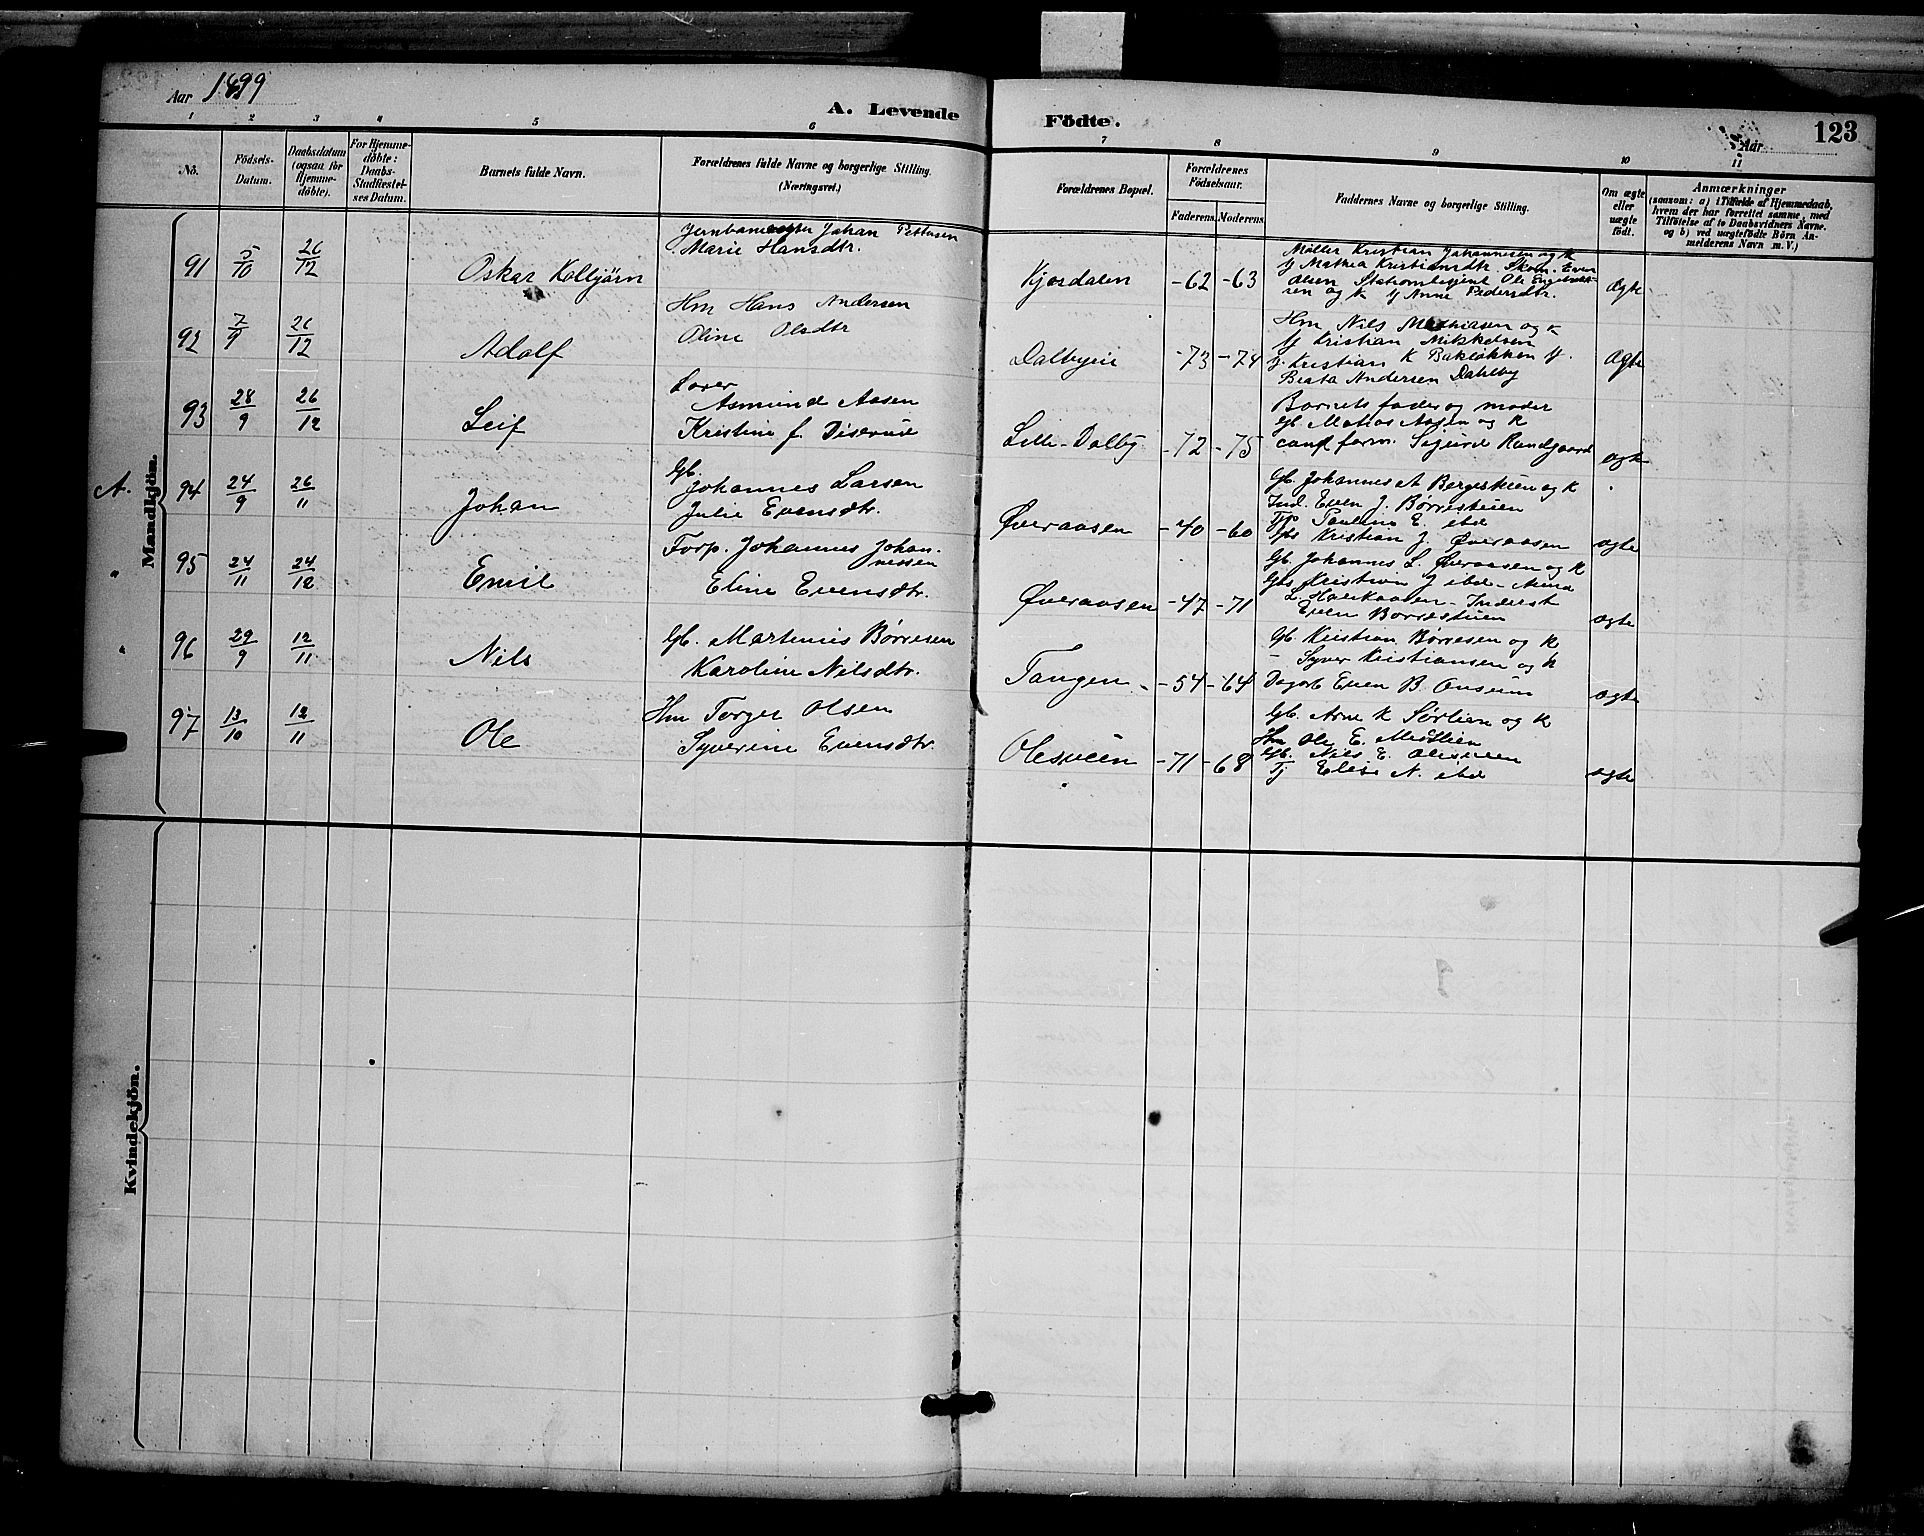 Aar 1899
A. Levende Födte.
Aar
123
1 2 3 4 5 6 7 8 9 10 11
No.
Födsels-Datum.
Daabsdatum (ogsaa for Hjemmedøbte).
For Hjemmedøbte: Daabs-Stadfæstelses Datum.
Barnets fulde Navn.
Forældrenes fulde Navne og borgerlige Stilling. (Næringsvei.)
Forældrenes Bopæl.
Forældrenes Födselsaar.
Faderens. Moderens.
Faddernes Navne og borgerlige Stilling.
Om ægte eller uægte födt.
Anmærkninger
(saasom: a) i Tilfælde af Hjemmedaab, hvem der har forrettet samme, med Tilføielse af to Daabsvidners Navne. og b) ved uægtefödte Börn Anmelderens Navn m. V.)
Mandkjön.
91 5/10 26/12 Oskar Kolbjörn
Johan Pettersen
Marie Hansdtr.
Kjosdalen -62 -63
Møller Kristian Johannesen og k
Mathea Kristiansdtr. Skom. Even
Olsen Ole Engebret-
sen og k Anne Pedersdtr.
Ægte
92 7/9 26/12 Adolf
Hm Hans Andersen
Oline Olsdtr
Dalbyeie -73 -74
Hm Nils Mathiasen og k
Kristian Mikkelsen
Kristian K Bakløkken
Beata Andersen Dahlby
Ægte
93 28/9 26/12 Leif
Asmund Aasen
Kristine f. Diserud
Lille-Dalby -72 -75
Barnets fader og moder
Gb. Matias Aasen og k
cand farm. Sigurd Rundgaard
ægte
A. 94 24/9 26/11 Johan
Gb. Johannes Larsen
Julie Evensdtr.
Øveraasen -40 -60
Gb. Johannes A Bergestuen og k
Ind. Even J. Børrestuen
Pauline E. ibd
Kristian J. Øveraasen
ægte
" 95 24/11 24/12 Emil
Forp. Johannes Johan-
nessen
Eline Evensdtr.
Øveraasen -47 -71
Gb. Johannes L. Øveraasen og k
Gbs Kristian J ibd - Anna
L. - Inderst
Even Borrestuen
ægte
" 96 29/9 12/11 Nils
Gb. Martinus Børresen
Karoline Nilsdtr.
Tangen -54 -64
Gb Kristian Børresen og k
- Syver Kristiansen og k
Dagarb Even B. Onsum
ægte
97 13/10 12/11 Ole
Hm Torger Olsen
Syverine Evensdtr.
Olesveen -71 -68
Gb. Arne K Sørlien og k
Hm Ole E. Midtlien
Gb. Nils E. Olesveen
Tj Elise N. ibd
ægte
Kvindekjön.